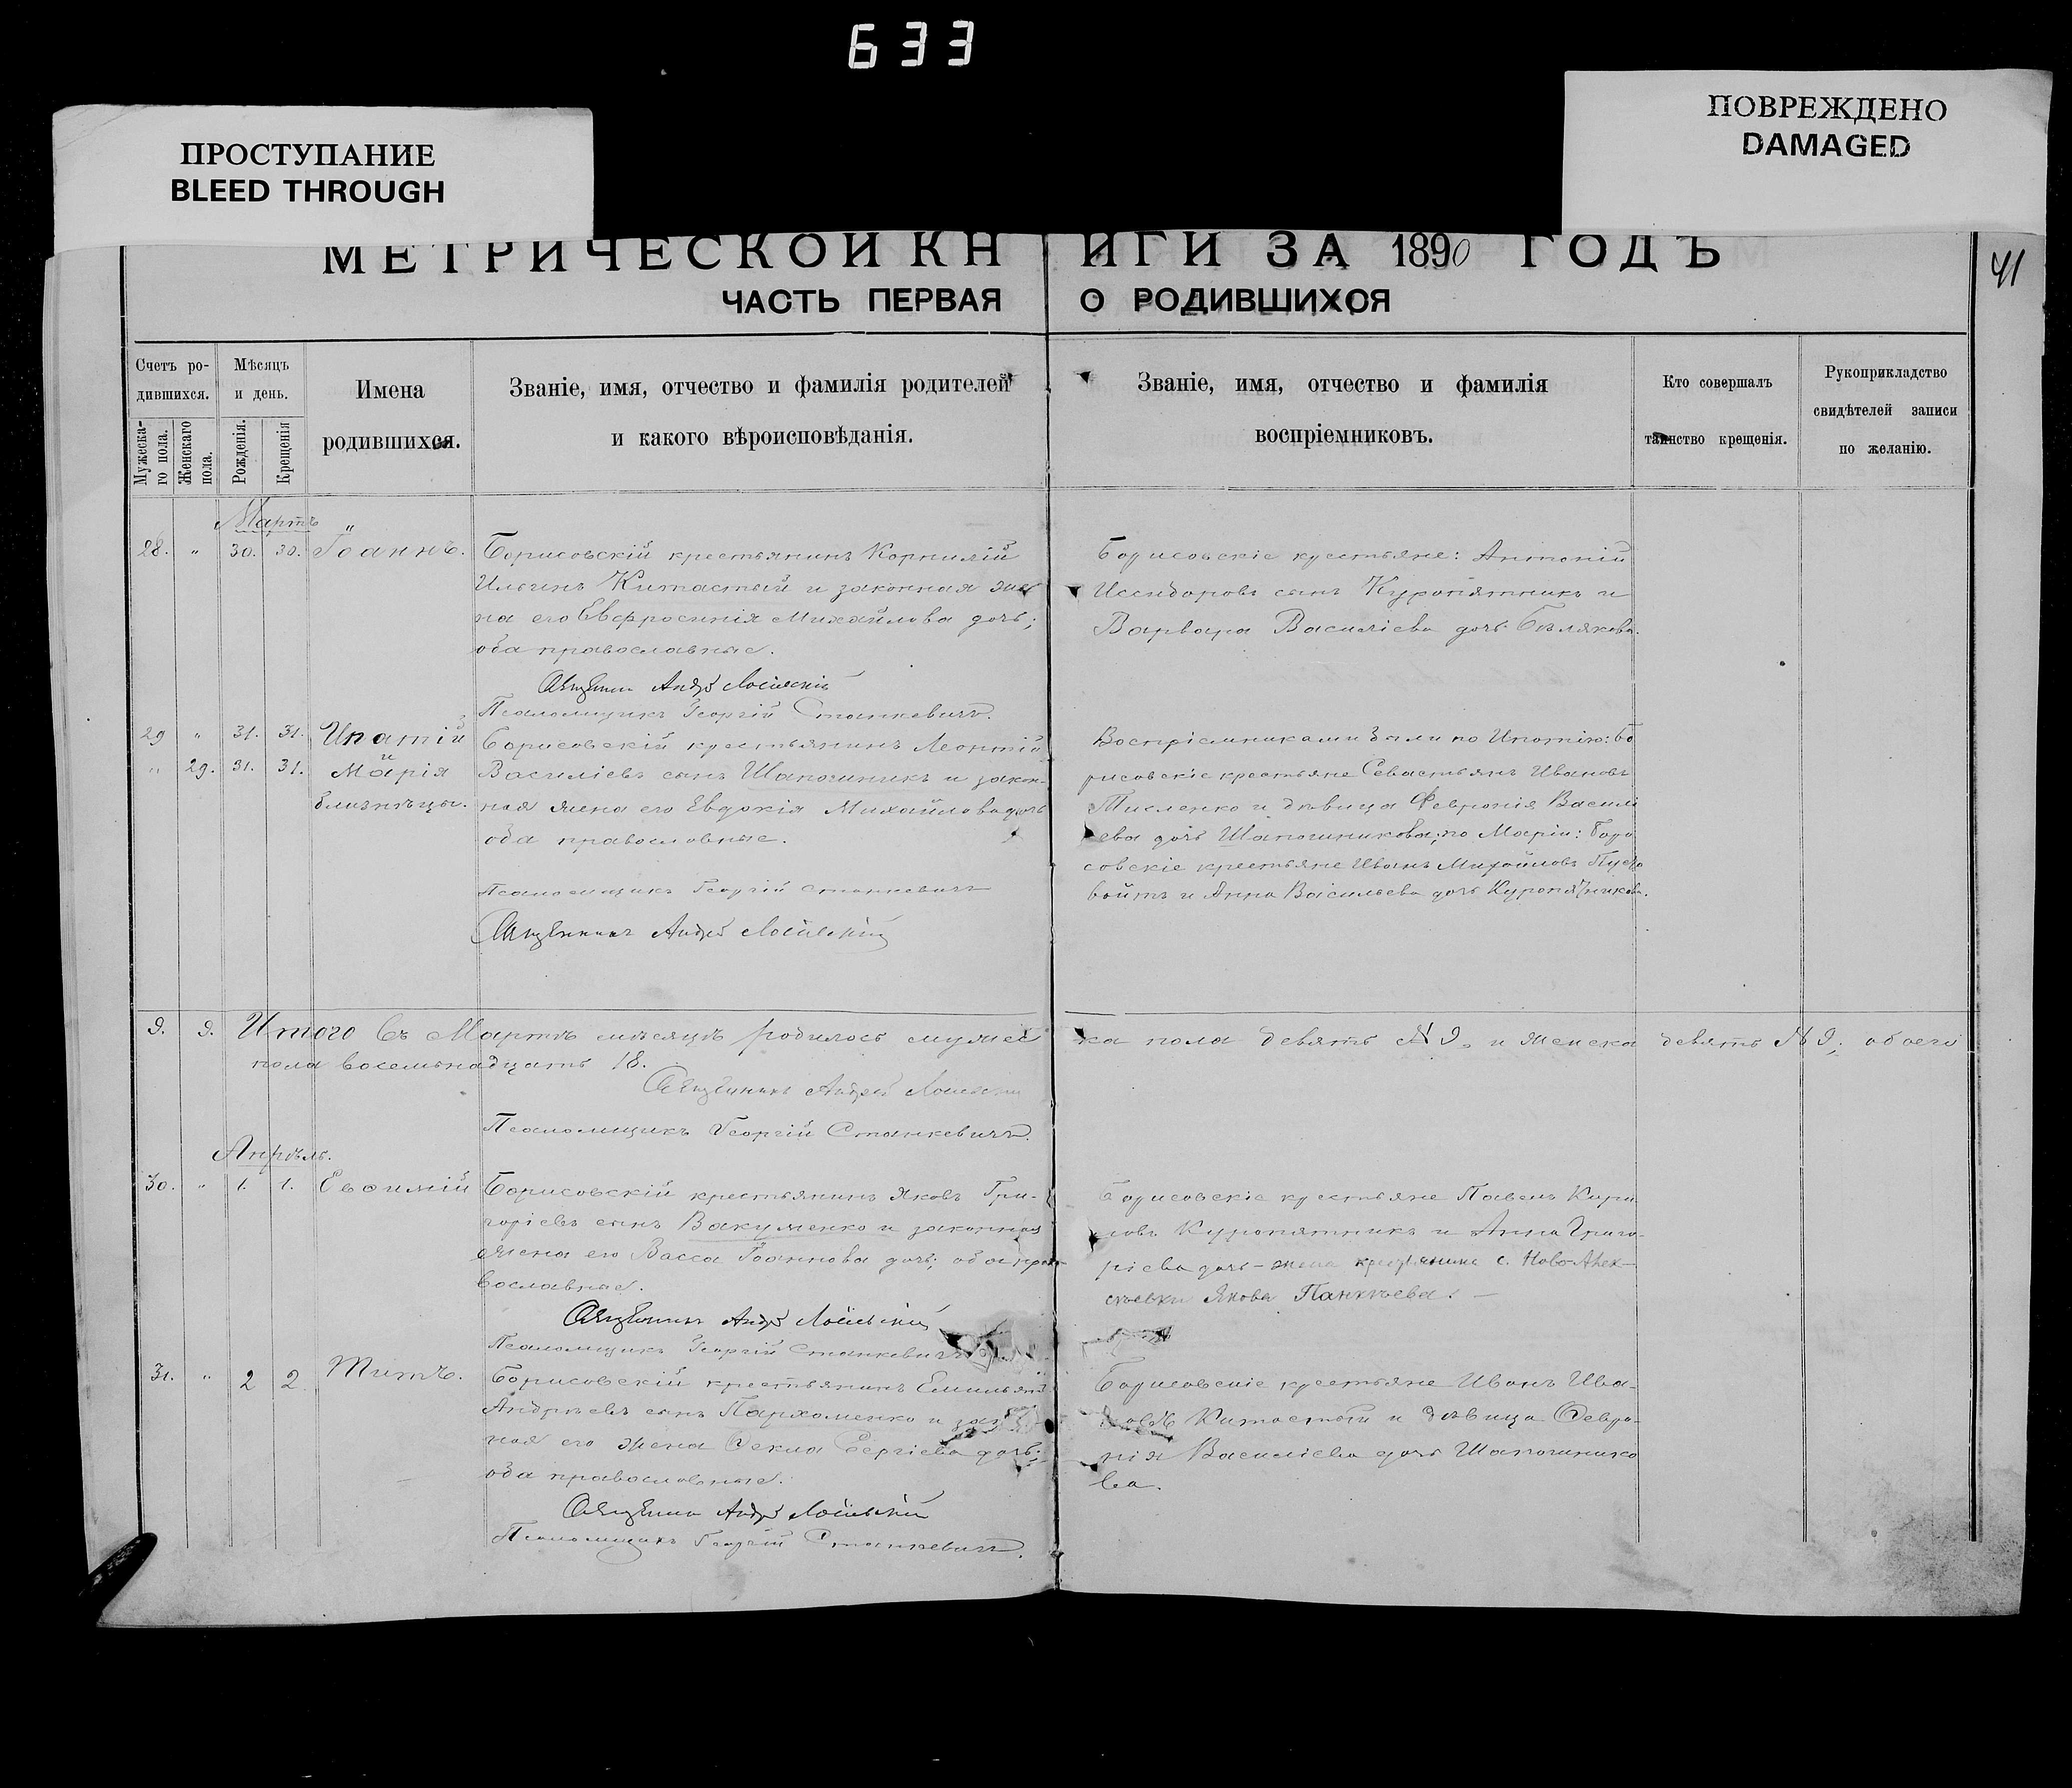 633
ПРОСТУПАНИЕ
BLEED THROUGH
ПОВРЕЖДЕНО
DAMAGED
МЕТРИЧЕСКОЙ КНИГИ ЗА 1890 ГОДЪ
41
ЧАСТЬ ПЕРВАЯ О РОДИВШИХСЯ
Счетъ ро-
дившихся.
Мужеска-
го пола.
Женскаго
пола.
Мѣсяцъ
и день.
Рожденія.
Крещенія
Имена
родившихся.
Званіе, имя, отчество и фамилія родителей
и какого вѣроисповѣданія.
Званіе, имя, отчество и фамилія
воспріемниковъ.
Кто совершалъ
таинство крещенія.
Рукоприкладство
свидѣтелей записи
по желанію.
Мартъ
28. " 30. 30. Іоаннъ.
Борисовскій крестьянинъ Корнилій
Ильинъ Китастый и законная же
на его Евфросинія Михайлова дочь;
оба православные.
Священник Андрей Лосіевскій
Псаломщикъ Георгій Станкевичъ.
Борисовскіе крестьяне: Антоній
Исидоровъ сынъ Куропятникъ и
Варвара Василіева дочь Бѣлякова.
29 " 31. 31. Ипатій
" 29. 31. 31. и Марія
близнецы.
Борисовскій крестьянинъ Леонтій
Василіевъ сынъ Шапошникъ и закон-
ная жена его Евдокія Михайлова дочь
оба православные.
Псаломщикъ Георгій Станкевичъ
Священникъ Андрей Лосіевскій
Воспріемниками были по Ипатію: Бо
рисовскіе крестьяне Севастьянъ Ивановъ
Тисленко и дѣвица Февронія Василі
ева дочь Шапошникова; по Маріи: Бори
совскіе крестьяне Иванъ Михайловъ Пусто
войтъ и Анна Васильева дочь Куропятникова.
9. 9. Итого въ Мартѣ мѣсяцѣ родилось мужес
ка пола девять № 9. и женска девять № 9; обоего
пола восемьнадцать 18.
Священникъ Андрей Лосіевскій
Псаломщикъ Георгій Станкевичъ.
Апрѣль.
30. " 1. 1. Евѳимій
Борисовскій крестьянинъ Яковъ Гри-
горіевъ сынъ Вакуменко и законная
жена его Васса Іоаннова дочь; оба пра-
вославные.
Священник Андрей Лосіевскій
Псаломщикъ Георгій Станкевичъ
Борисовскіе крестьяне Павелъ Кири
ловъ Куропятникъ и Анна Григо-
ріева дочь - жена крестьянина с. Ново-Алек-
сѣевки Якова Панкѣева. —
31. " 2 2 Титъ.
Борисовскій крестьянинъ Емильянъ
Андреевъ сынъ Пархоменко и зак
ная его жена Ѳекла Сергіева дочь;
оба православные.
Священник Андрей Лосіевскій
Псаломщикъ Георгій Станкевичъ.
Борисовскіе крестьяне Иванъ Ива-
новъ Китастый и дѣвица Февро-
нія Василіева дочь Шапошнико
ва.